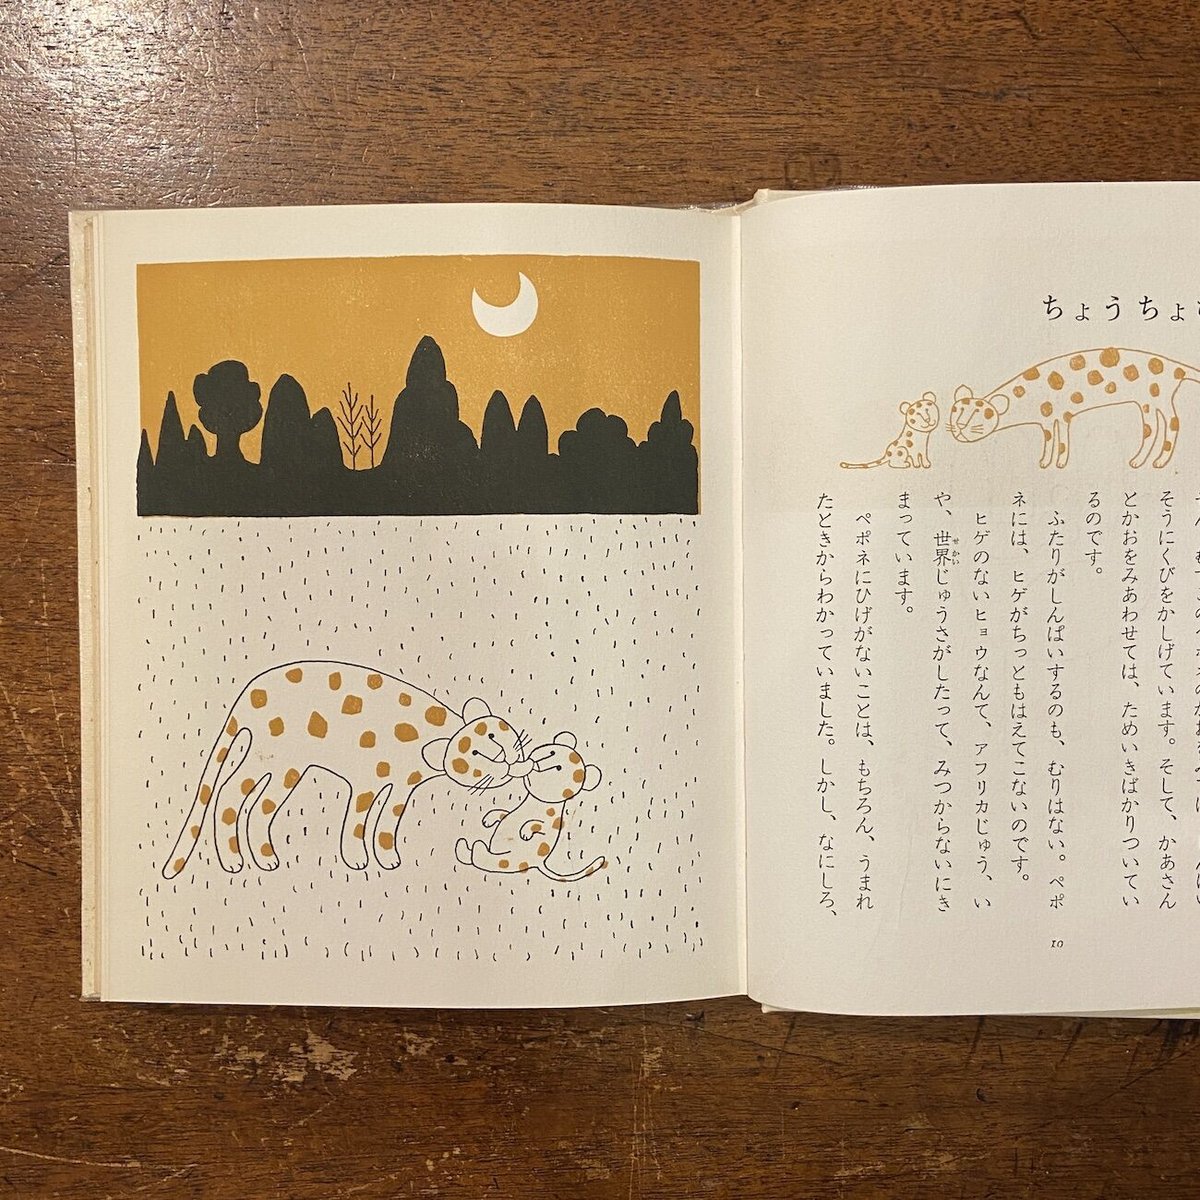 ちょうちょ
そうにくびをかしげています。そして、かあさん
とかおをみあわせては、ためいきばかりついてい
るのです。
ふたりがしんぱいするのも、むりはない。ペポ
ネには、ヒゲがちっともはえてこないのです。
ヒゲのないヒョウなんて、アフリカじゅう、い
や、世界じゅうさがしたって、みつからないにき
せかい
まっています。
ペポネにひげがないことは、もちろん、うまれ
たときからわかっていました。しかし、なにしろ、
10